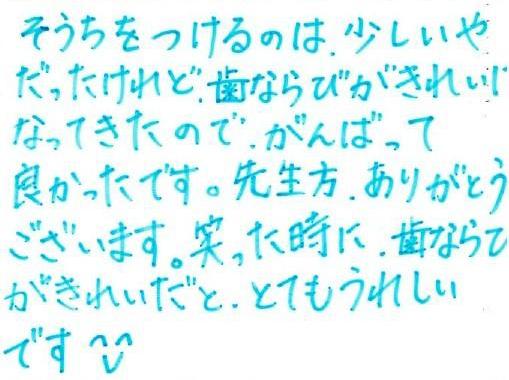 そうちをつけるのは、少しいや
だったけれど、歯ならびがきれいに
なってきたので、がんばって
良かったです。先生方、ありがとう
ございます。笑った時に、歯ならび
がきれいだと、とてもうれしい
です